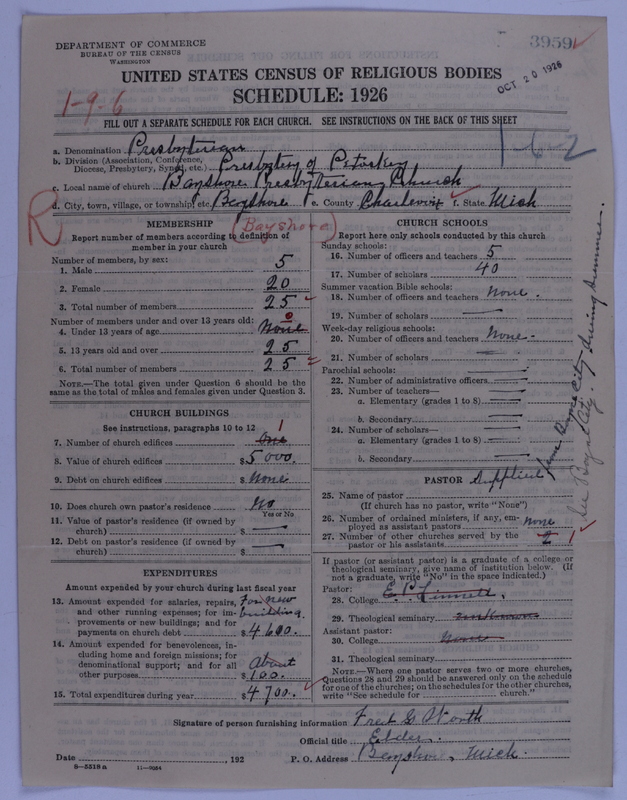 DEPARTMENT OF COMMERCE
BUREAU OF THE CENSUS
WASHINGTON
3959
OCT 20 1926
UNITED STATES CENSUS OF RELIGIOUS BODIES
SCHEDULE: 1926
1-9-6
FILL OUT A SEPARATE SCHEDULE FOR EACH CHURCH. SEE INSTRUCTIONS ON THE BACK OF THIS SHEET
1-6-2
a. Denomination Presbyterian
b. Division (Association, Conference, Diocese, Presbytery, Synod, etc.) Presbytery of Petoskey
c. Local name of church Bayshore Presbyterian Church
d. City, town, village, or township etc. Bayshore e. County Charlevoix f. State Mich
R
(Bayshore)
MEMBERSHIP
Report number of members according to definition of
member in your church
Number of members, by sex:
1. Male 5
2. Female 20
3. Total number of members 25
Number of members under and over 13 years old:
4. Under 13 years of age None 0
5. 13 years old and over 25
6. Total number of members 25
NOTE.—The total given under Question 6 should be the
same as the total of males and females given under Question 3.
CHURCH BUILDINGS
See instructions, paragraphs 10 to 12
7. Number of church edifices One 1
8. Value of church edifices $5000.
9. Debt on church edifices $None
10. Does church own pastor's residence No
Yes or No
11. Value of pastor's residence (if owned by
church) $
12. Debt on pastor's residence (if owned by
church) $
EXPENDITURES
Amount expended by your church during last fiscal year
13. Amount expended for salaries, repairs, For new
and other running expenses; for im- building.
provements or new buildings; and for
payments on church debt $4600.
14. Amount expended for benevolences, in-
cluding home and foreign missions; for
denominational support; and for all About
other purposes $100.
15. Total expenditures during year $4700.
CHURCH SCHOOLS
Report here only schools conducted by this church
Sunday schools:
16. Number of officers and teachers 5
17. Number of scholars 40
Summer vacation Bible schools:
18. Number of officers and teachers None.
19. Number of scholars
Week-day religious schools:
20. Number of officers and teachers None.
21. Number of scholars
Parochial schools:
22. Number of administrative officers
23. Number of teachers—
a. Elementary (grades 1 to 8)
b. Secondary
24. Number of scholars—
a. Elementary (grades 1 to 8)
b. Secondary
PASTOR Supplied
from Boyne City during summer.
See Boyne City.
25. Name of pastor
(If church has no pastor, write "None")
26. Number of ordained ministers, if any, em-
ployed as assistant pastors none
27. Number of other churches served by the
pastor or his assistants 2 1
If pastor (or assistant pastor) is a graduate of a college or
theological seminary, give name of institution below. (If
not a graduate, write "No" in the space indicated.)
Pastor:
28. College E. P.
29. Theological seminary unknown
Assistant pastor:
30. College None
31. Theological seminary
NOTE.—Where one pastor serves two or more churches,
Questions 28 and 29 should be answered only on the schedule
for one of the churches; on the schedules for the other churches,
write "See schedule for church."
Signature of person furnishing information Fred G. Worth
Official title Elder.
Date , 192 P. O. Address Bayshore, Mich.
8—5518 a 11—9034